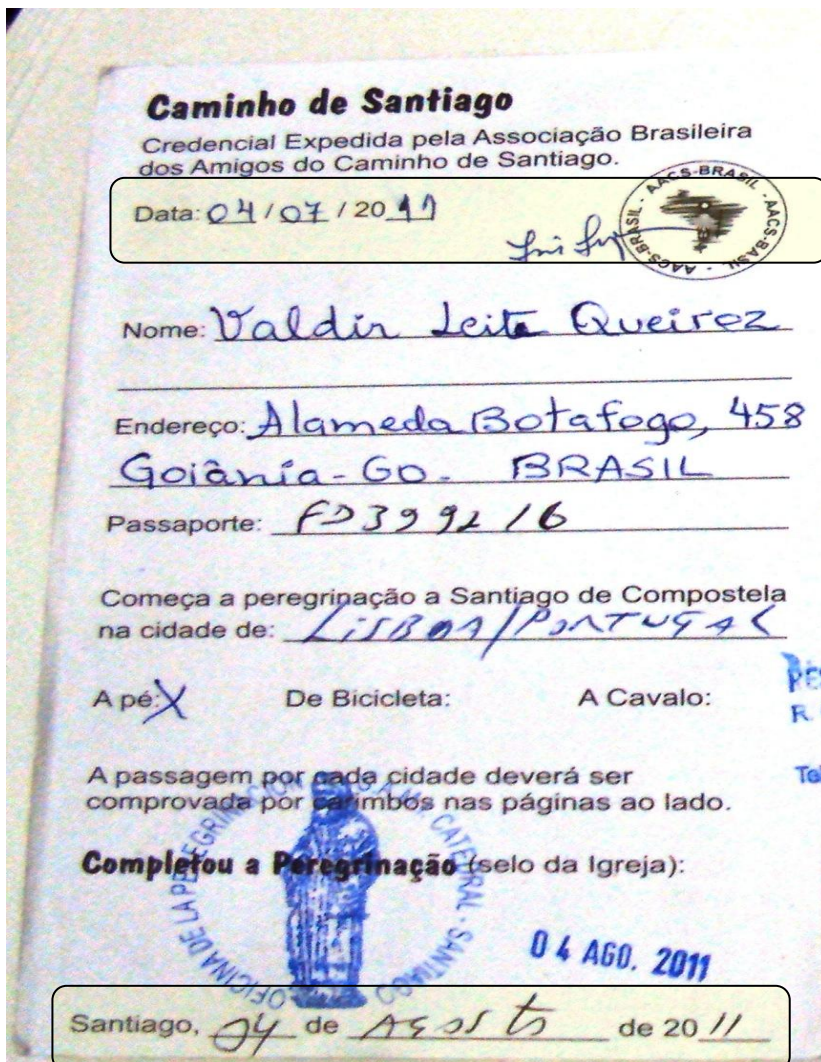 Caminho de Santiago
Credencial Expedida pela Associação Brasileira
dos Amigos do Caminho de Santiago.
Data: 04/07/2011
AACS-BRASIL · AACS-BASIL · AACS-BRASIL ·
Nome: Valdir Leite Queiroz
Endereço: Alameda Botafogo, 458
Goiânia-GO- BRASIL
Passaporte: FD399216
Começa a peregrinação a Santiago de Compostela
na cidade de: LISBOA/PORTUGAL
A pé: X De Bicicleta: A Cavalo:
R.
A passagem por cada cidade deverá ser
comprovada por carimbos nas páginas ao lado.
Completou a Peregrinação (selo da Igreja):
OFICINA DE LA PEREGRINACION CATEDRAL - SANTIAGO
04 AGO. 2011
Santiago, 04 de Agosto de 2011